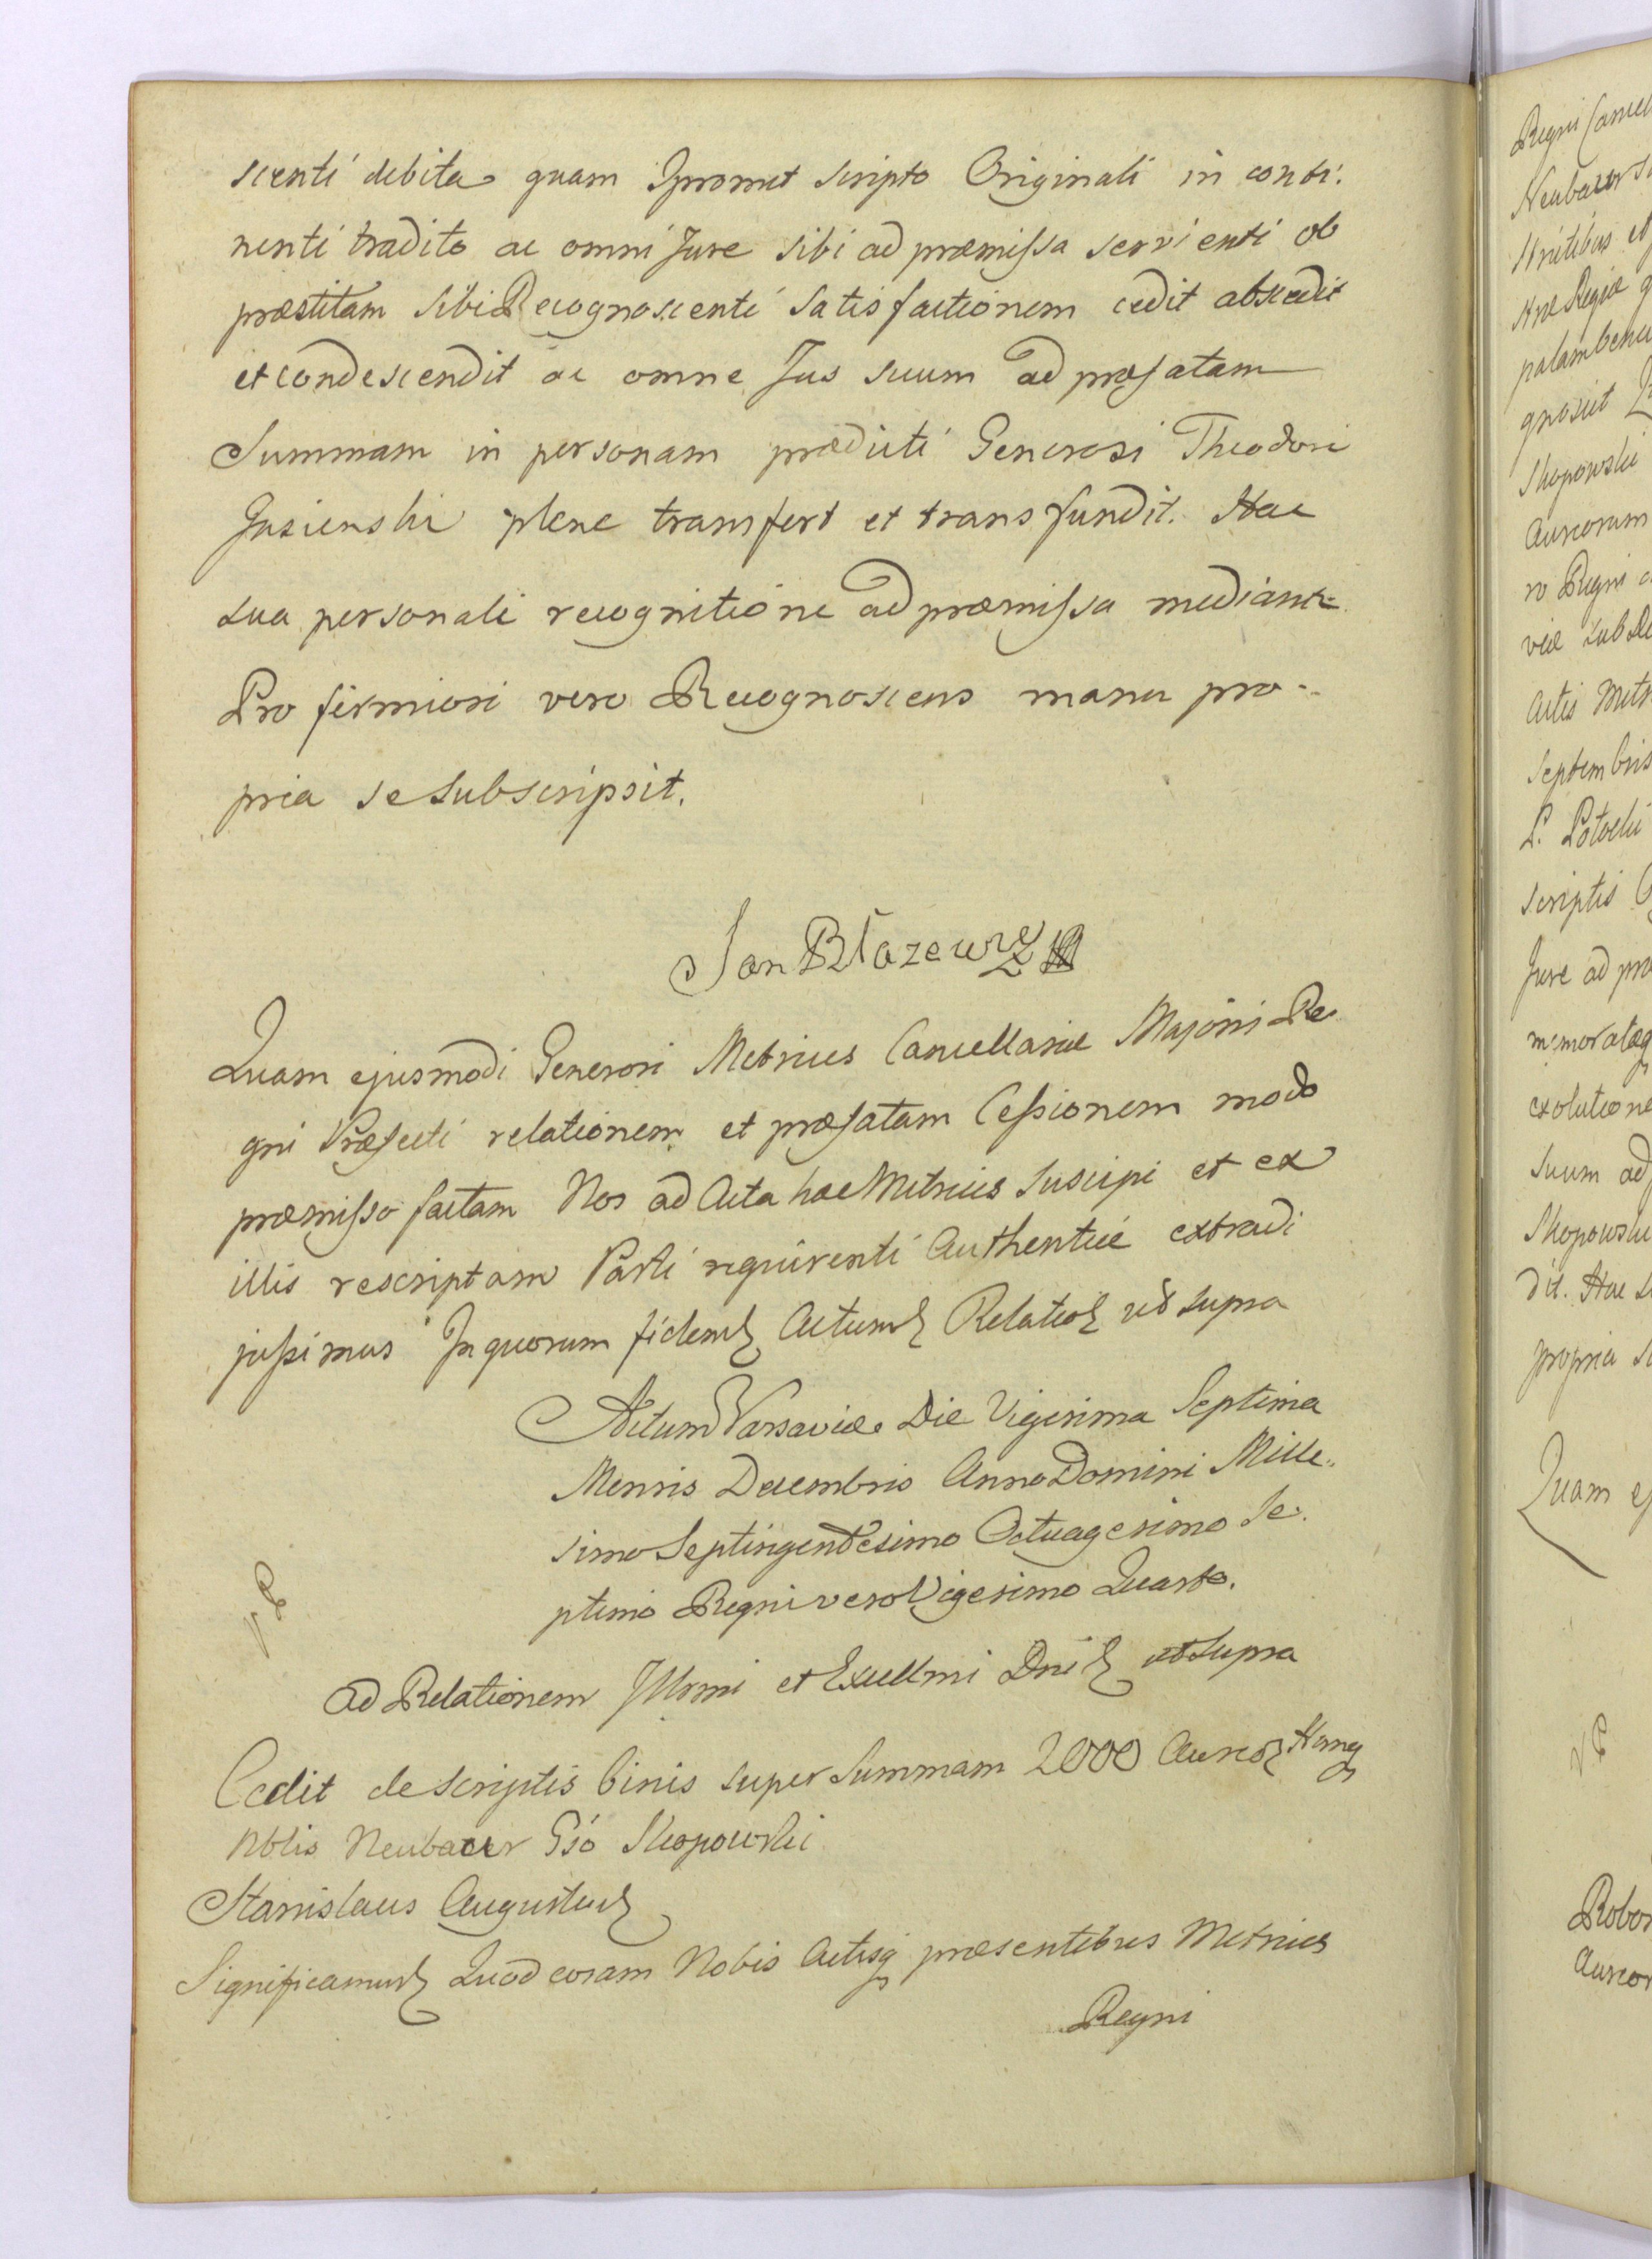 scenti debita quam Ipsomet scripto Originali in conti-
nenti tradito ac omni Jure sibi ad præmissa servienti ob
præstitam sibi Recognoscenti satisfactionem cedit abscedit
et condescendit ac omne Jus suum ad præfatam
Summam in personam prædicti Generosi Theodori
Jasienski plene transfert et transfundit. Hac
sua personali recognitione ad præmissa mediante.
Pro firmiori vero Recognoscens manu pro-
pria se subscripsit.
Jan Błazewicz
Quam ejusmodi Generosi Metrices Cancellariæ Majoris Re-
gni Præfecti relationem et præfatam Cessionem modo
præmisso factam Nos ad Acta hæc Metrices suscipi et ex
illis rescriptam Parti requirenti Authentice extradi
jussimus In quorum fidem Actum Relatio ut supra
Actum Varsaviæ Die Vigesima Septima
Mensis Decembris Anno Domini Mille-
simo Septingentesimo Octuagesimo Se-
ptimo Regni vero Vigesimo Quarto.
ad Relationem Illrmi et Excellmi Dni ut supra
Cedit de scriptis binis super Summam 2000 Aureor Hung
Nblis Neubauer Gso Skopowski
Stanislaus Augustus
Significamus Quod coram Nobis Actisq præsentibus Metrices
Regni
Regni Cancel
Neubauer
palam bene
gnovit
Skopowski
Aureorum
ro Regni
viæ sub
Actis Metr
Septembris
P. Potocki
scriptis
Jure ad præ
memoratæq
exolutione
suum ad
Skopowski
dit. Hac s
propria s
Quam ej
Robor
Aureor